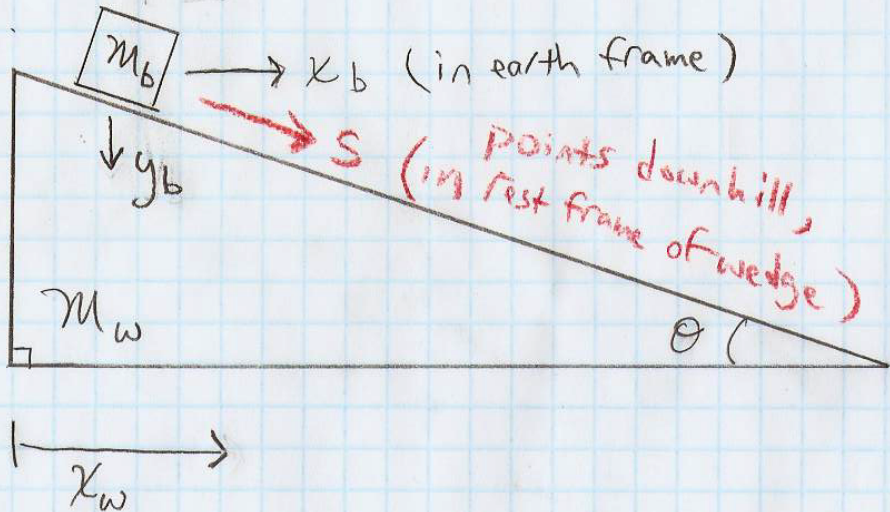 m_b → x_b (in earth frame)
↓ y_b
S (points downhill,
in rest frame of wedge)
m_w
θ
x_w